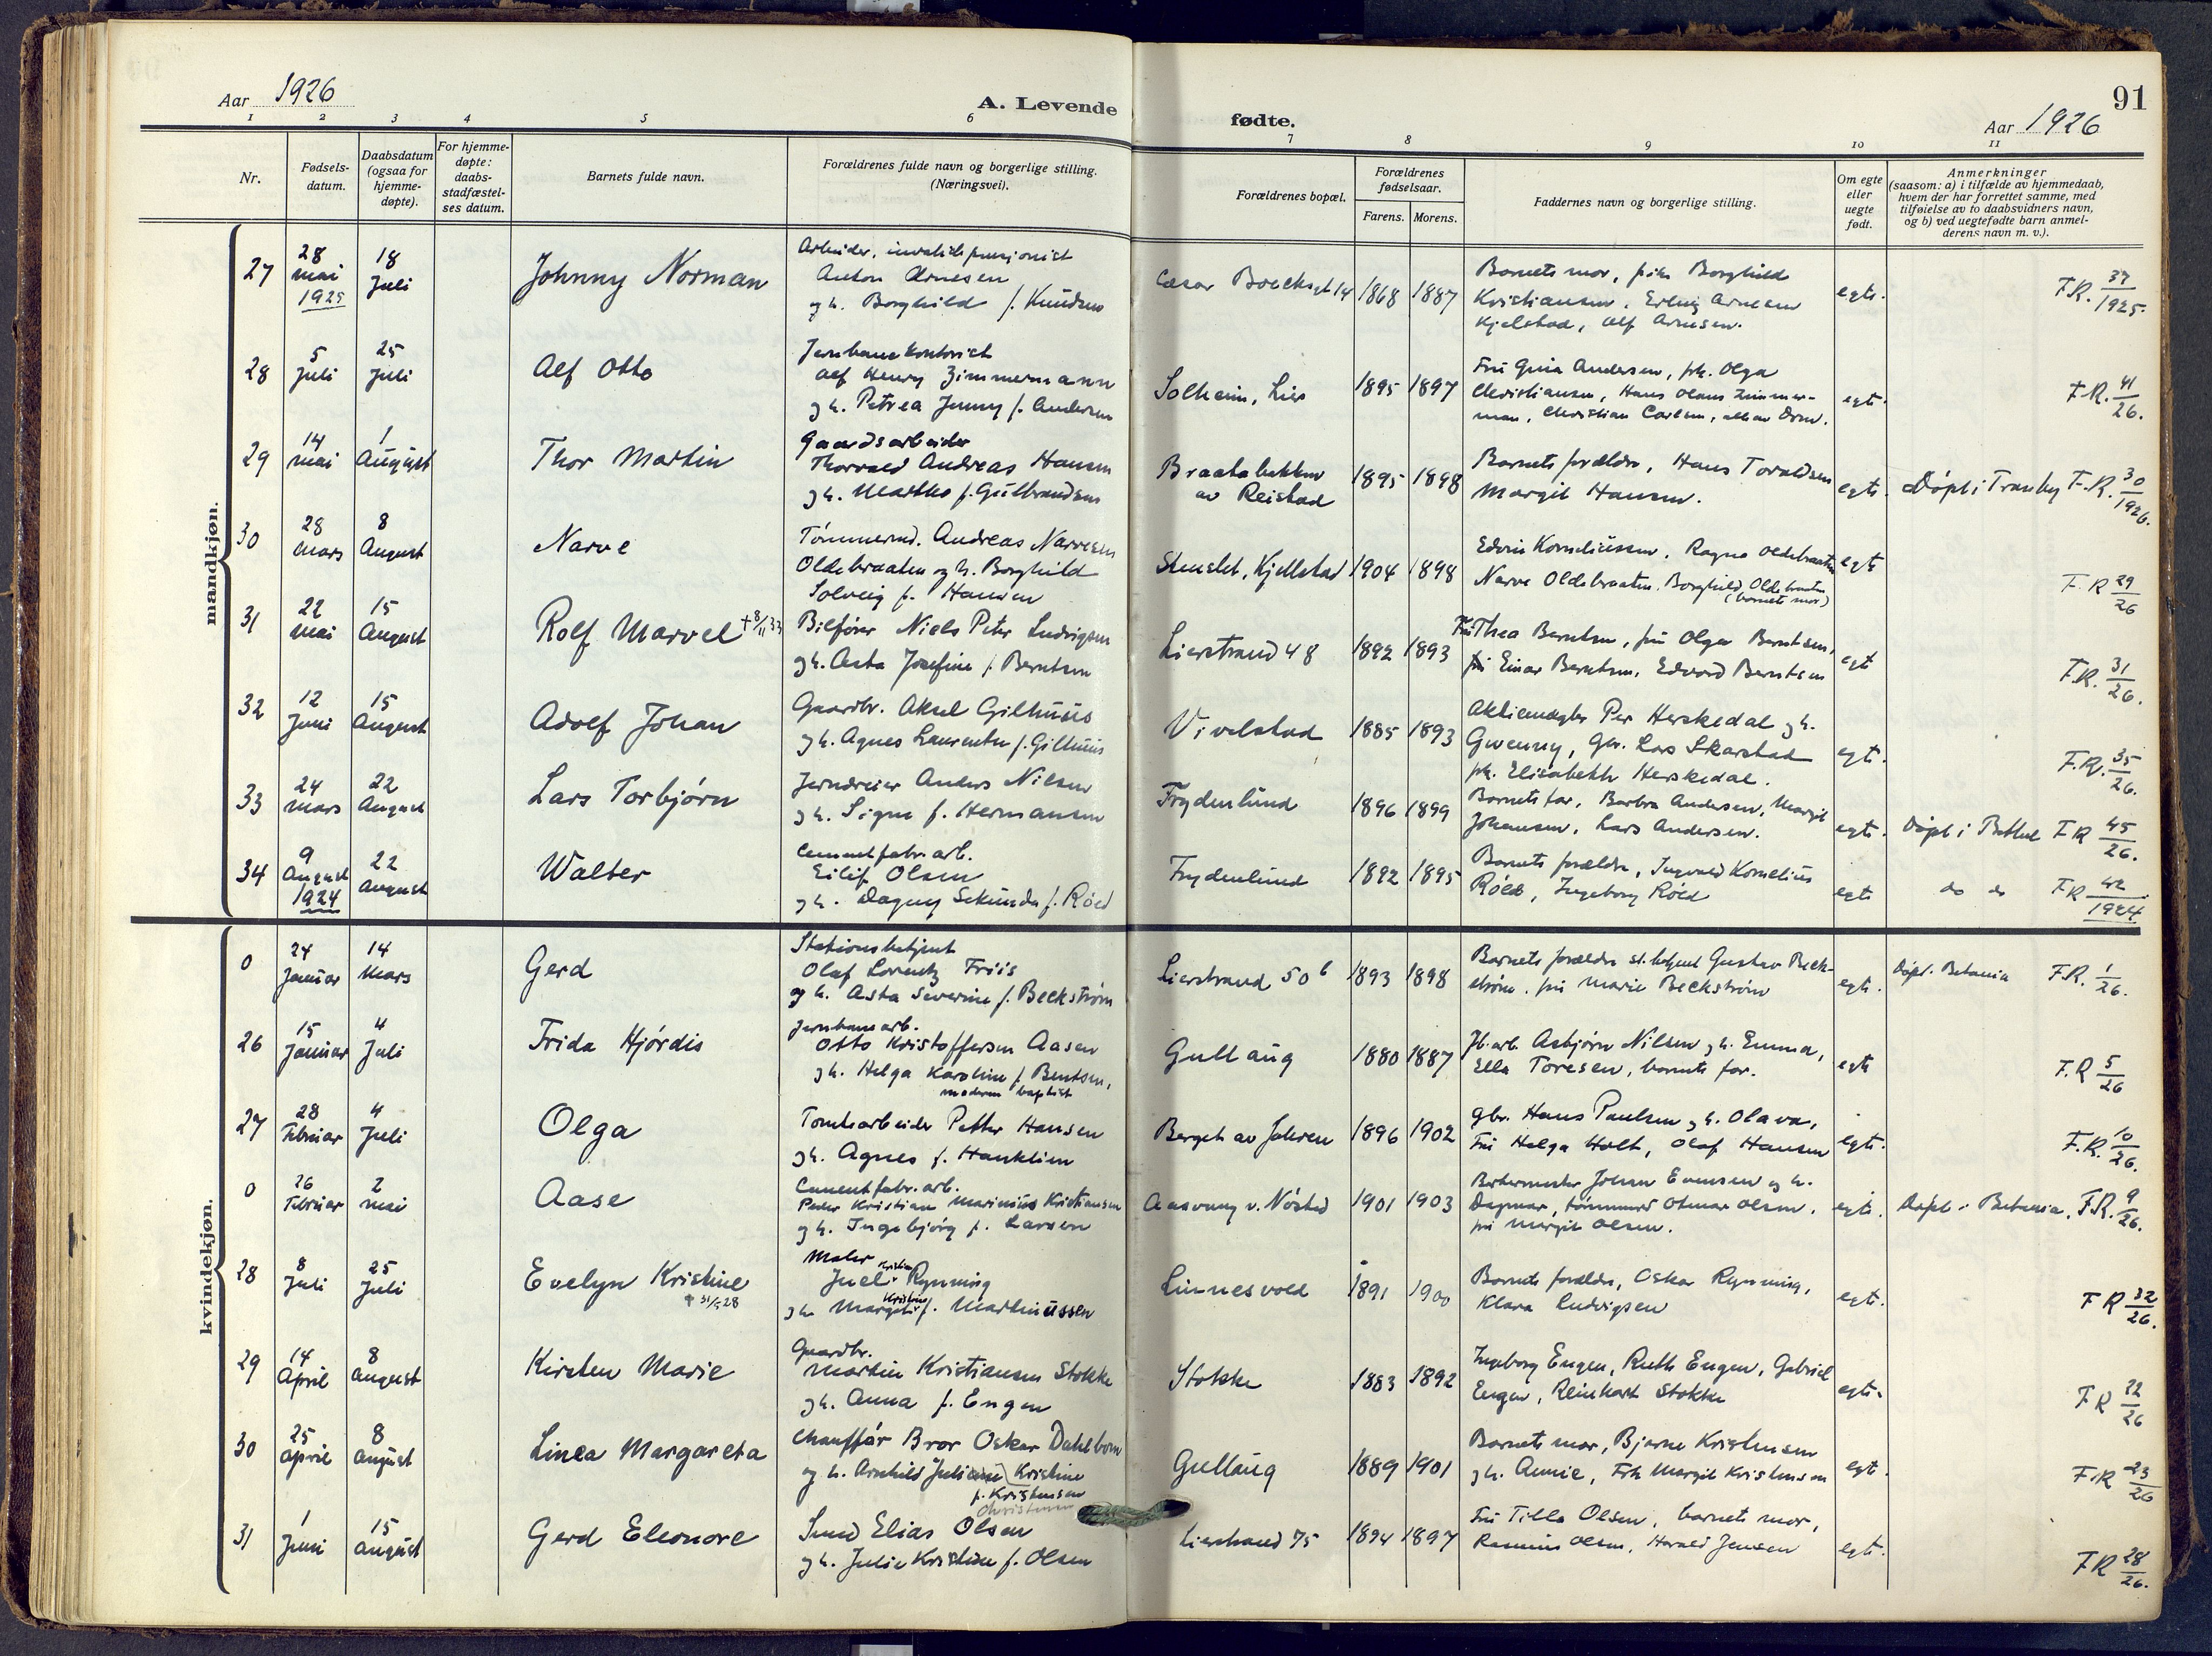 Aar 1926
A. Levende fødte.
Aar 1926
91
1 2 3 4 5 6 7 8 9 10 11
Nr.
Fødsels-
datum.
Daabsdatum
(ogsaa for
hjemme-
døpte).
For hjemme-
døpte:
daabs-
stadfæstel-
ses datum.
Barnets fulde navn.
Forældrenes fulde navn og borgerlige stilling.
(Næringsvei).
Forældrenes bopæl.
Forældrenes
fødselsaar.
Farens. Morens.
Faddernes navn og borgerlige stilling.
Om egte
eller
uegte
født.
Anmerkninger
(saasom: a) i tilfælde av hjemmedaab,
hvem der har forrettet samme, med
tilføielse av to daabsvidners navn,
og b) ved uegtefødte barn anmel-
derens navn m. v.).
mandkjøn.
27
28
mai
1925
18
Juli
Johnny Norman
Arbeider, invalidepensjonist
Anton Arnesen
og h. Borghild f. Knudsen
Cæsar Boecksgt 14
1868 1887
Barnets mor, frk Borghild
Kristiansen, Erling Arnesen
Kjelstad, Alf Arnesen.
egte.
F.R. 37/1925.
28
5
Juli
25
Juli
Alf Otto
Jernbanekontorist
Alf Henry Zimmermann
og h. Petrea Jenny f. Andersen
Solheim, Lier
1895 1897
Fru Gina Andersen, frk. Olga
Christiansen, Hans Olaus Zimmer-
man, Christian Carlsen,
egte.
F.R. 41/26.
29
14
mai
1
August
Thor Martin
Gaardsarbeider
Thorvald Andreas Hansen
og h. Martha f. Gulbrandsen
Braatabakken
av Reistad
1895 1898
Barnets forældre, Hans Toraldsen
Margit Hansen.
egte.
Døpt i Tranby F.R. 30/1926.
30
28
mars
8
August
Narve
Tømmerm. Andreas Narvesen
Oldebraaten og h. Borghild
Solveig f. Hansen
Stenslet, Kjellstad
1904 1898
Edvin Korneliussen, Ragna Oldebraaten
Narve Oldebraaten, Borghild Oldebraaten
(barnets mor)
egte
F.R 29/26
31
22
mai
15
August
Rolf Marvel +8/11 33
Bilfører Niels Peter Ludvigsen
og h. Asta Josefine f. Berntsen
Lierstrand 48
1892 1893
Fru Thea Berntsen, fru Olga Berntsen,
Einar Berntsen, Edvard Berntsen
egt
F.R. 31/26.
32
12
Juni
15
August
Adolf Johan
Gaardbr. Aksel Gilhuus
og h. Agnes Laurentse f. Gilhuus
Vivelstad
1885 1893
Per Herskedal og h.
Gwenny, Gbr. Lars Skarstad
frk. Elisabeth Herskedal.
egt.
F.R. 35/26.
33
24
mars
22
August
Lars Torbjørn
Jerndreier Anders Nilsen
og h. Signe f. Hermansen
Frydenlund
1896 1899
Barnets far, Barbra Andersen, Margit
Johansen, Lars Andersen.
egte.
Døpt i Betel F.R 45/26.
34
9
August
1924
22
August
Walter
Cementfabr. arb.
Eilif Olsen
og h. Dagny Sekunda f. Røed
Frydenlund
1892 1895
Barnets forældre, Ingvald Kornelius
Røed, Ingeborg Røed
egte
do do F.R 42/1924.
kvindekjøn.
0
24
Januar
14
Mars
Gerd
Stationsbetjent
Olaf Lorentz Friis
og h. Asta Severine f. Beckstrøm
Lierstrand 50 b
1893 1898
Barnets forældre st. betjent Gustav Beck-
strøm, fru Marie Beckstrøm
egte.
Døpt i Betania F.R. 1/26.
26
15
Januar
4
Juli
Frida Hjørdis
Jernbanearb.
Otto Kristoffersen Aasen
og h. Helga Karoline f. Bentsen,
moderen baptist
Gullaug
1880 1887
Jb. arb. Asbjørn Nilsen og h. Emma,
Ella Toresen, barnets far.
egte
F.R 5/26
27
28
Februar
4
Juli
Olga
Tomtearbeider Petter Hansen
og h. Agnes f. Hanklien
Berget av Jahren
1896 1902
Gbr. Hans Paulsen og h. Olava,
Fru Helga Holt, Olaf Hansen
egte.
F.R. 10/26.
0
26
Februar
2
mai
Aase
Cementfabr. arb.
Peder Kristian Marinius Kristiansen
og h. Ingebjørg f. Larsen
Aasvang v. Nøsted
1901 1903
Johan Evensen og h.
Dagmar, tømmerm Otmar Olsen,
fru Margit Olsen.
egte.
Døpt i Betania, F.R. 9/26.
28
8
Juli
25
Juli
Evelyn Kristine
+ 31/5 28
Maler
Juel Kristian Rynning
og h. Margit Kristine f. Martinussen
Linnesvold
1891 1900
Barnets forældre, Oskar Rynning,
Klara Ludvigsen
egte.
F R 32/26.
29
14
April
8
August
Kirsten Marie
Gaardbr.
Martin Kristiansen Stokke
og h. Anna f. Engen
Stokke
1883 1892
Ingeborg Engen, Ruth Engen, Gabriel
Engen, Reinhart Stokke
egte.
F R 22/26
30
25
April
8
August
Linea Margareta
Chauffør Bror Oskar Dahlbom
og h. Arnhild Juliane Kristine
f. Kristensen
Christensen
Gullaug
1889 1901
Barnets mor, Bjarne Kristensen
og h. Annie, Frk Margit Kristensen
egte.
F.R 23/26
31
1
Juni
15
August
Gerd Eleonore
Smed Elias Olsen
og h. Julie Kristine f. Olsen
Lierstrand 75
1894 1897
Fru Tilla Olsen, barnets mor,
Rasmus Olsen, Harald Jensen
egte.
F R 28/26.